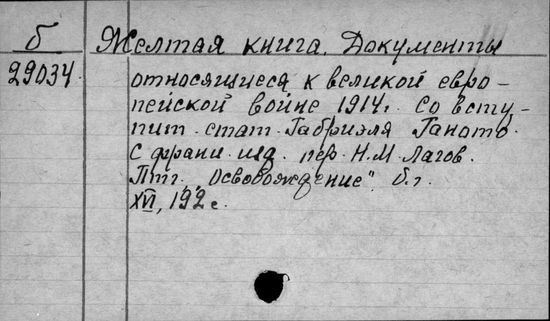 б
29034.
Желтая книга. Документы
относящиеся к великой евро-
пейской войне 1914г. Со всту-
пит. стат. Габриэля Ганото.
С франц. изд. пер. Н.М. Лагов.
Птг. "Освобождение". б.г.
XVI, 192 с.